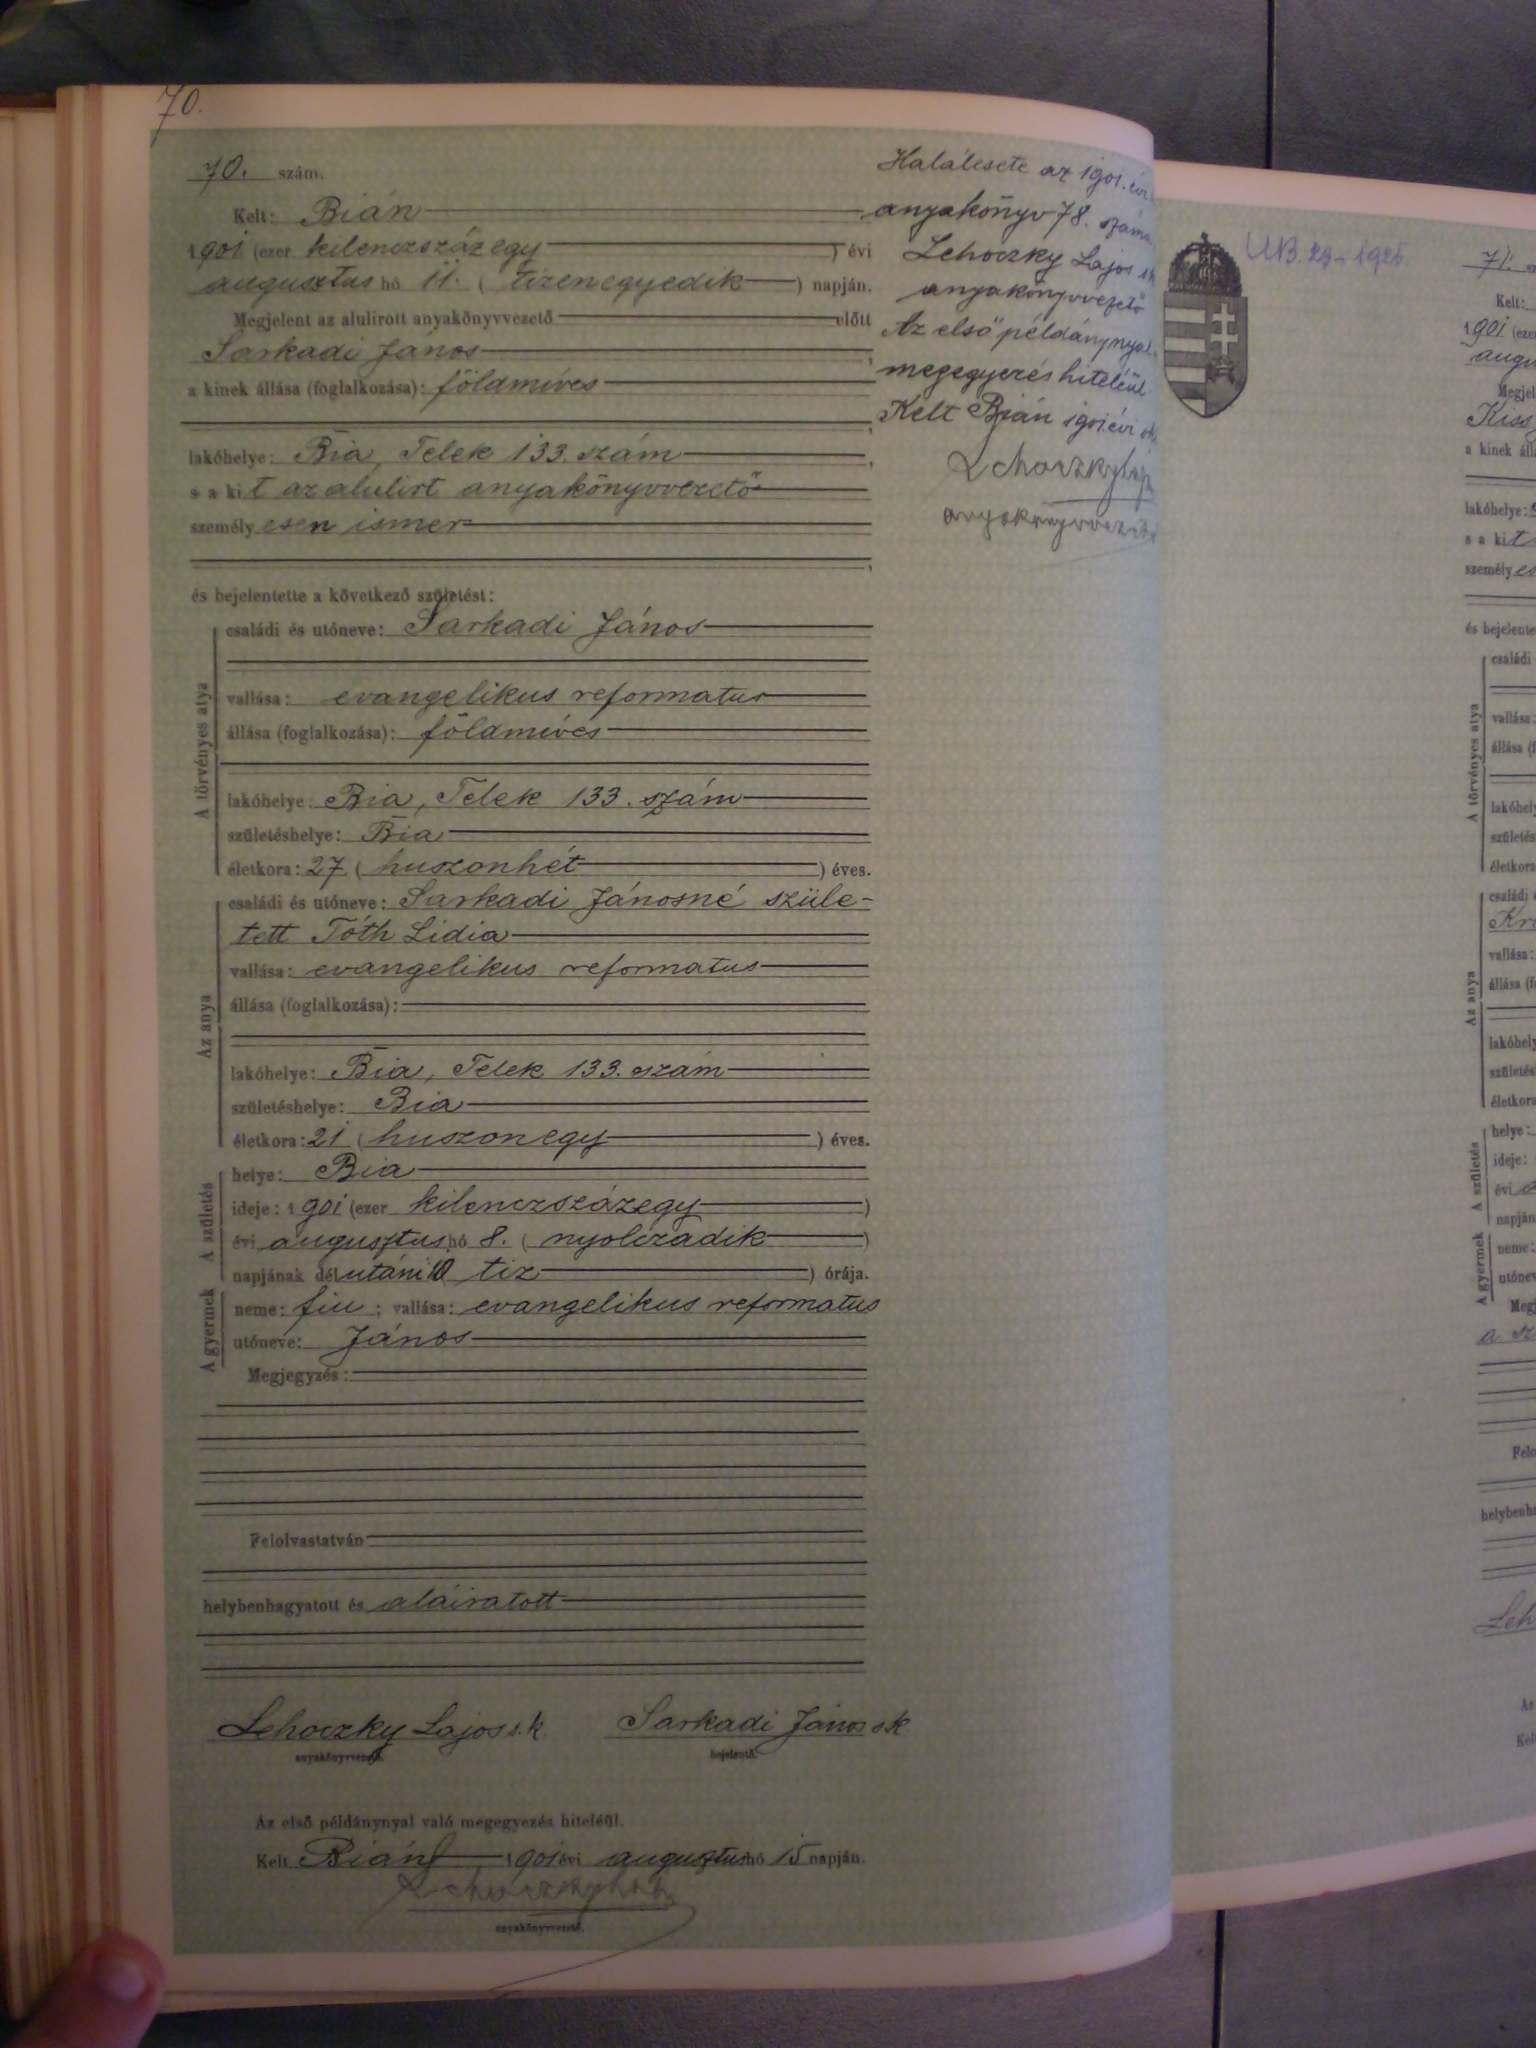 70.
70. szám.
Kelt: Bián
1901 (ezer kilenczszázegy ) évi
augusztus hó 11. ( tizenegyedik ) napján.
Megjelent az alulirott anyakönyvvezető előtt
Sarkadi János
a kinek állása (foglalkozása): földmíves
lakóhelye: Bia, Telek 133. szám ,
s a kit az alulirt anyakönyvvezető
személyesen ismer
,
és bejelentette a következő születést:
A törvényes atya
családi és utóneve: Sarkadi János
vallása: evangelikus reformatus
állása (foglalkozása): földmíves
lakóhelye: Bia, Telek 133. szám
születéshelye: Bia
életkora: 27 ( huszonhét ) éves.
Az anya
családi és utóneve: Sarkadi Jánosné szüle-
tett Tóth Lidia
vallása: evangelikus reformatus
állása (foglalkozása):
lakóhelye: Bia, Telek 133. szám
születéshelye: Bia
életkora: 21 ( huszonegy ) éves.
A születés
helye: Bia
ideje: 1901 (ezer kilenczszázegy )
évi augusztus hó 8. ( nyolczadik )
napjának délutáni 10 tiz ) órája.
A gyermek
neme: fiu ; vallása: evangelikus reformatus
utóneve: János
Megjegyzés:
Felolvastatván
helybenhagyatott és aláiratott
Lehoczky Lajos s.k.
anyakönyvvezető.
Sarkadi János sk
bejelentő.
Az első példánynyal való megegyezés hiteléül.
Kelt Bián 1901 évi augusztus hó 15 napján.
Lehoczky
anyakönyvvezető.
Halálesete az 1901. évi
anyakönyv 78. szám
Lehoczky Lajos
anyakönyvvezető
Az első példánynyal
megegyezés hiteléül.
Kelt Bián 1901. évi
Lehoczky
anyakönyvvezető
UB. 29-1925.
71.
Kelt:
1901 (eze
augu
Megjel
Kiss
a kinek áll
lakóhelye:
s a kit
személy es
és bejelente
A törvényes atya
családi
vallása:
állása (f
lakóhely
születés
életkora
Az anya
családi
Kr
vallása:
állása (f
lakóhely
születés
életkora
A születés
helye:
ideje:
évi
napján
A gyermek
neme:
utónev
Megj
a sz
Felo
helybenha
Leh
Az
Kel